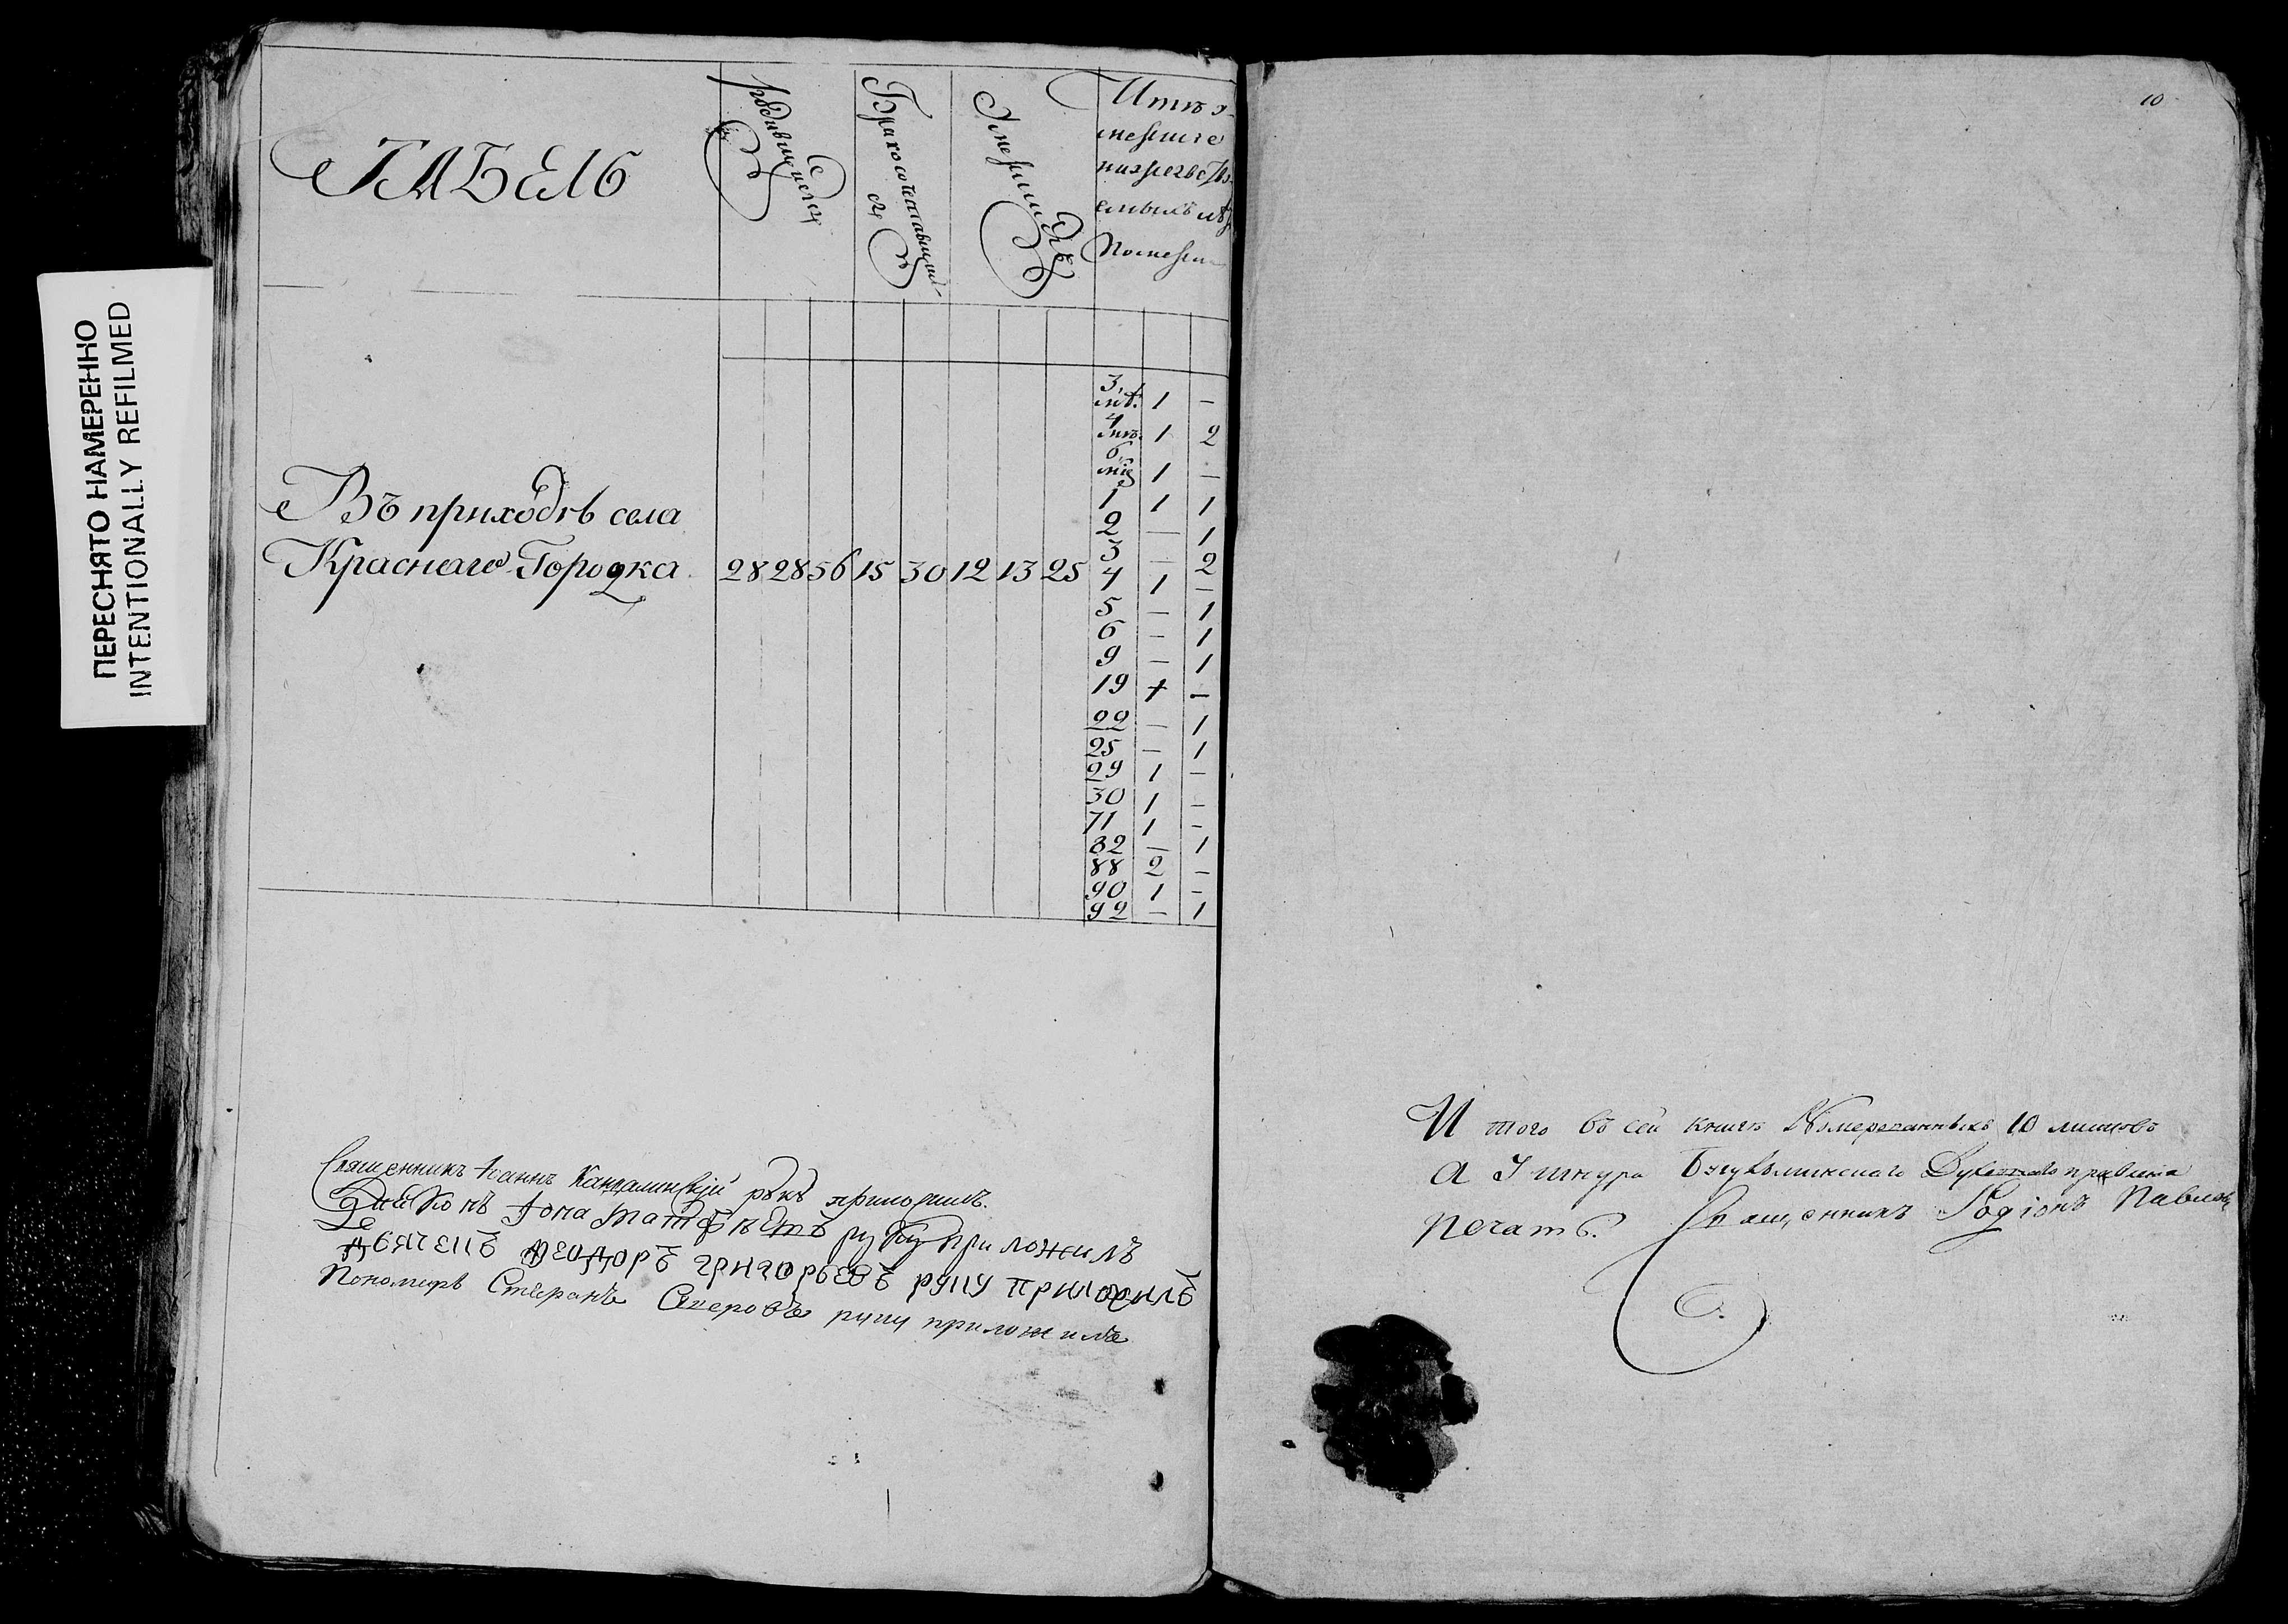 ПЕРЕСНЯТО НАМЕРЕННО
INTENTIONALLY REFILMED
ТАБЕЛЬ
родившиеся
Бракосочетавшихся
Умершихъ
Въ приходѣ села
Краснаго Городка 28 28 56 15 30 12 13 25
3 1 –
4 1 2
6 1 –
1 1 1
2 – 1
3 – 2
4 1 –
5 – 1
6 – 1
9 – 1
19 1 –
22 – 1
25 – 1
29 1 –
30 1 –
71 1 –
82 – 1
88 2 –
90 1 –
92 – 1
Священникъ Іоаннъ руку приложилъ.
Діаконъ Іона руку приложилъ
Дьячекъ Ѳеодоръ григорьевъ руку приложилъ
Пономарь Стефанъ руку приложилъ
10
Итого въ сей книгѣ Номерованныхъ 10 листовъ
а У шнура Бугульминскаго Духовнаго правленія
печать. Священникъ Родіонъ Павловъ